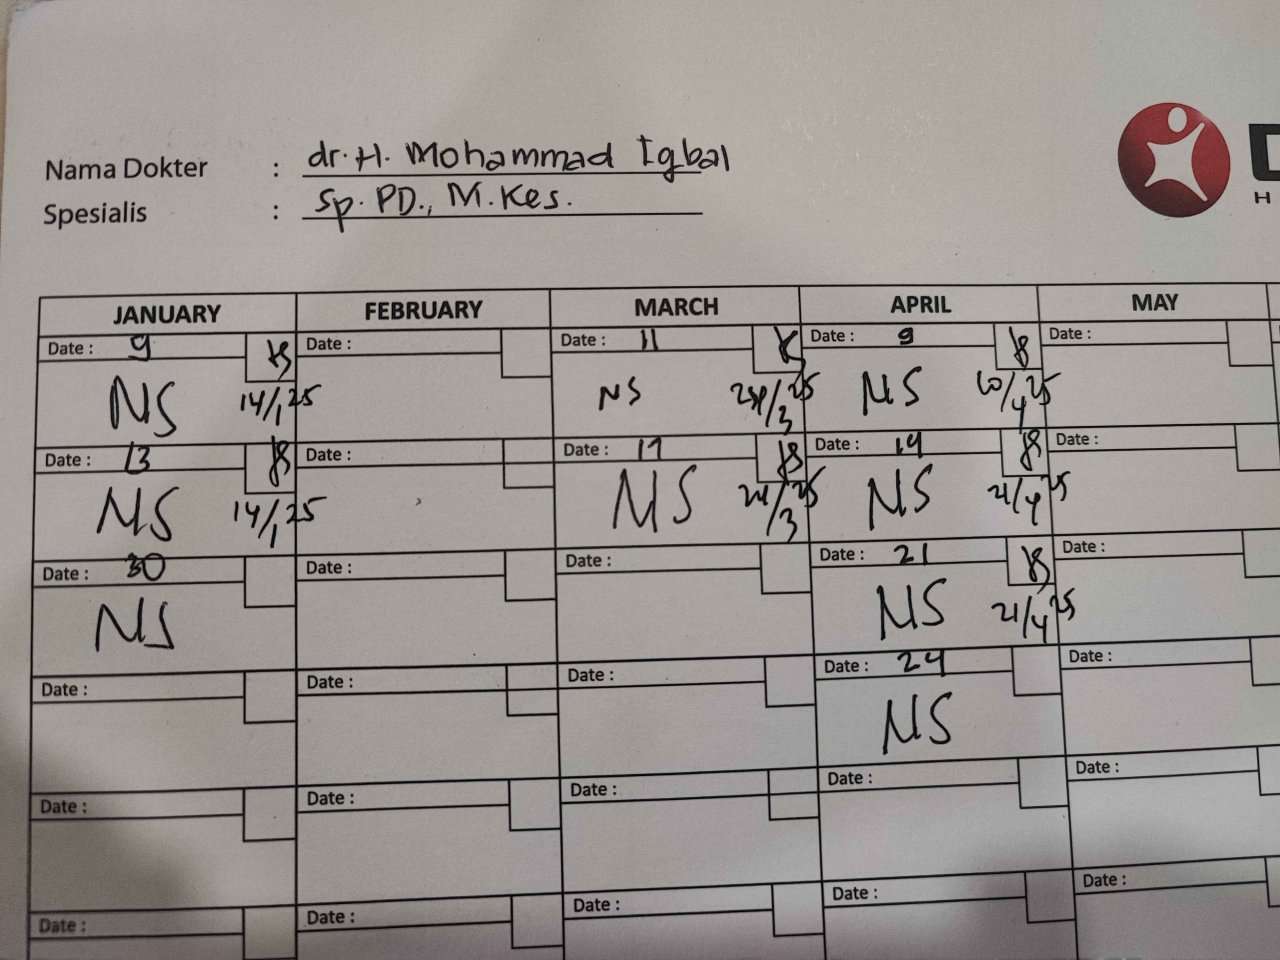 Nama Dokter : dr. H. Mohammad Iqbal
Spesialis : Sp. PD., M. Kes.
D
H
JANUARY FEBRUARY MARCH APRIL MAY
Date : 9 Date : Date : 11 Date : 9 Date :
NS 14/1 25 NS 25 NS
Date : 13 Date : Date : 17 Date : 14 Date :
NS 14/1 25 NS 24/3 25 NS 21/4 25
Date : 30 Date : Date : Date : 21 Date :
NS NS 21/4 25
Date : Date : Date : Date : 24 Date :
NS
Date : Date : Date : Date : Date :
Date : Date : Date : Date : Date :